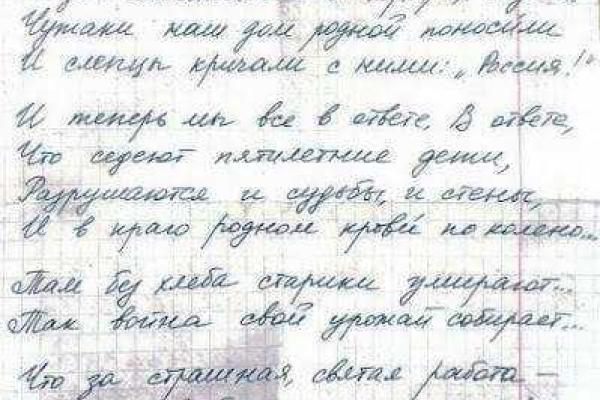 Чужаки наш дом родной поносили
И слепцы кричали с ними: „Россия!"
И теперь мы все в ответе. В ответе,
Что седеют пятилетние дети,
Разрушаются и судьбы, и стены,
И в краю родном крови по колено...
Там без хлеба старики умирают...
Так война свой урожай собирает...
Что за страшная, святая работа –